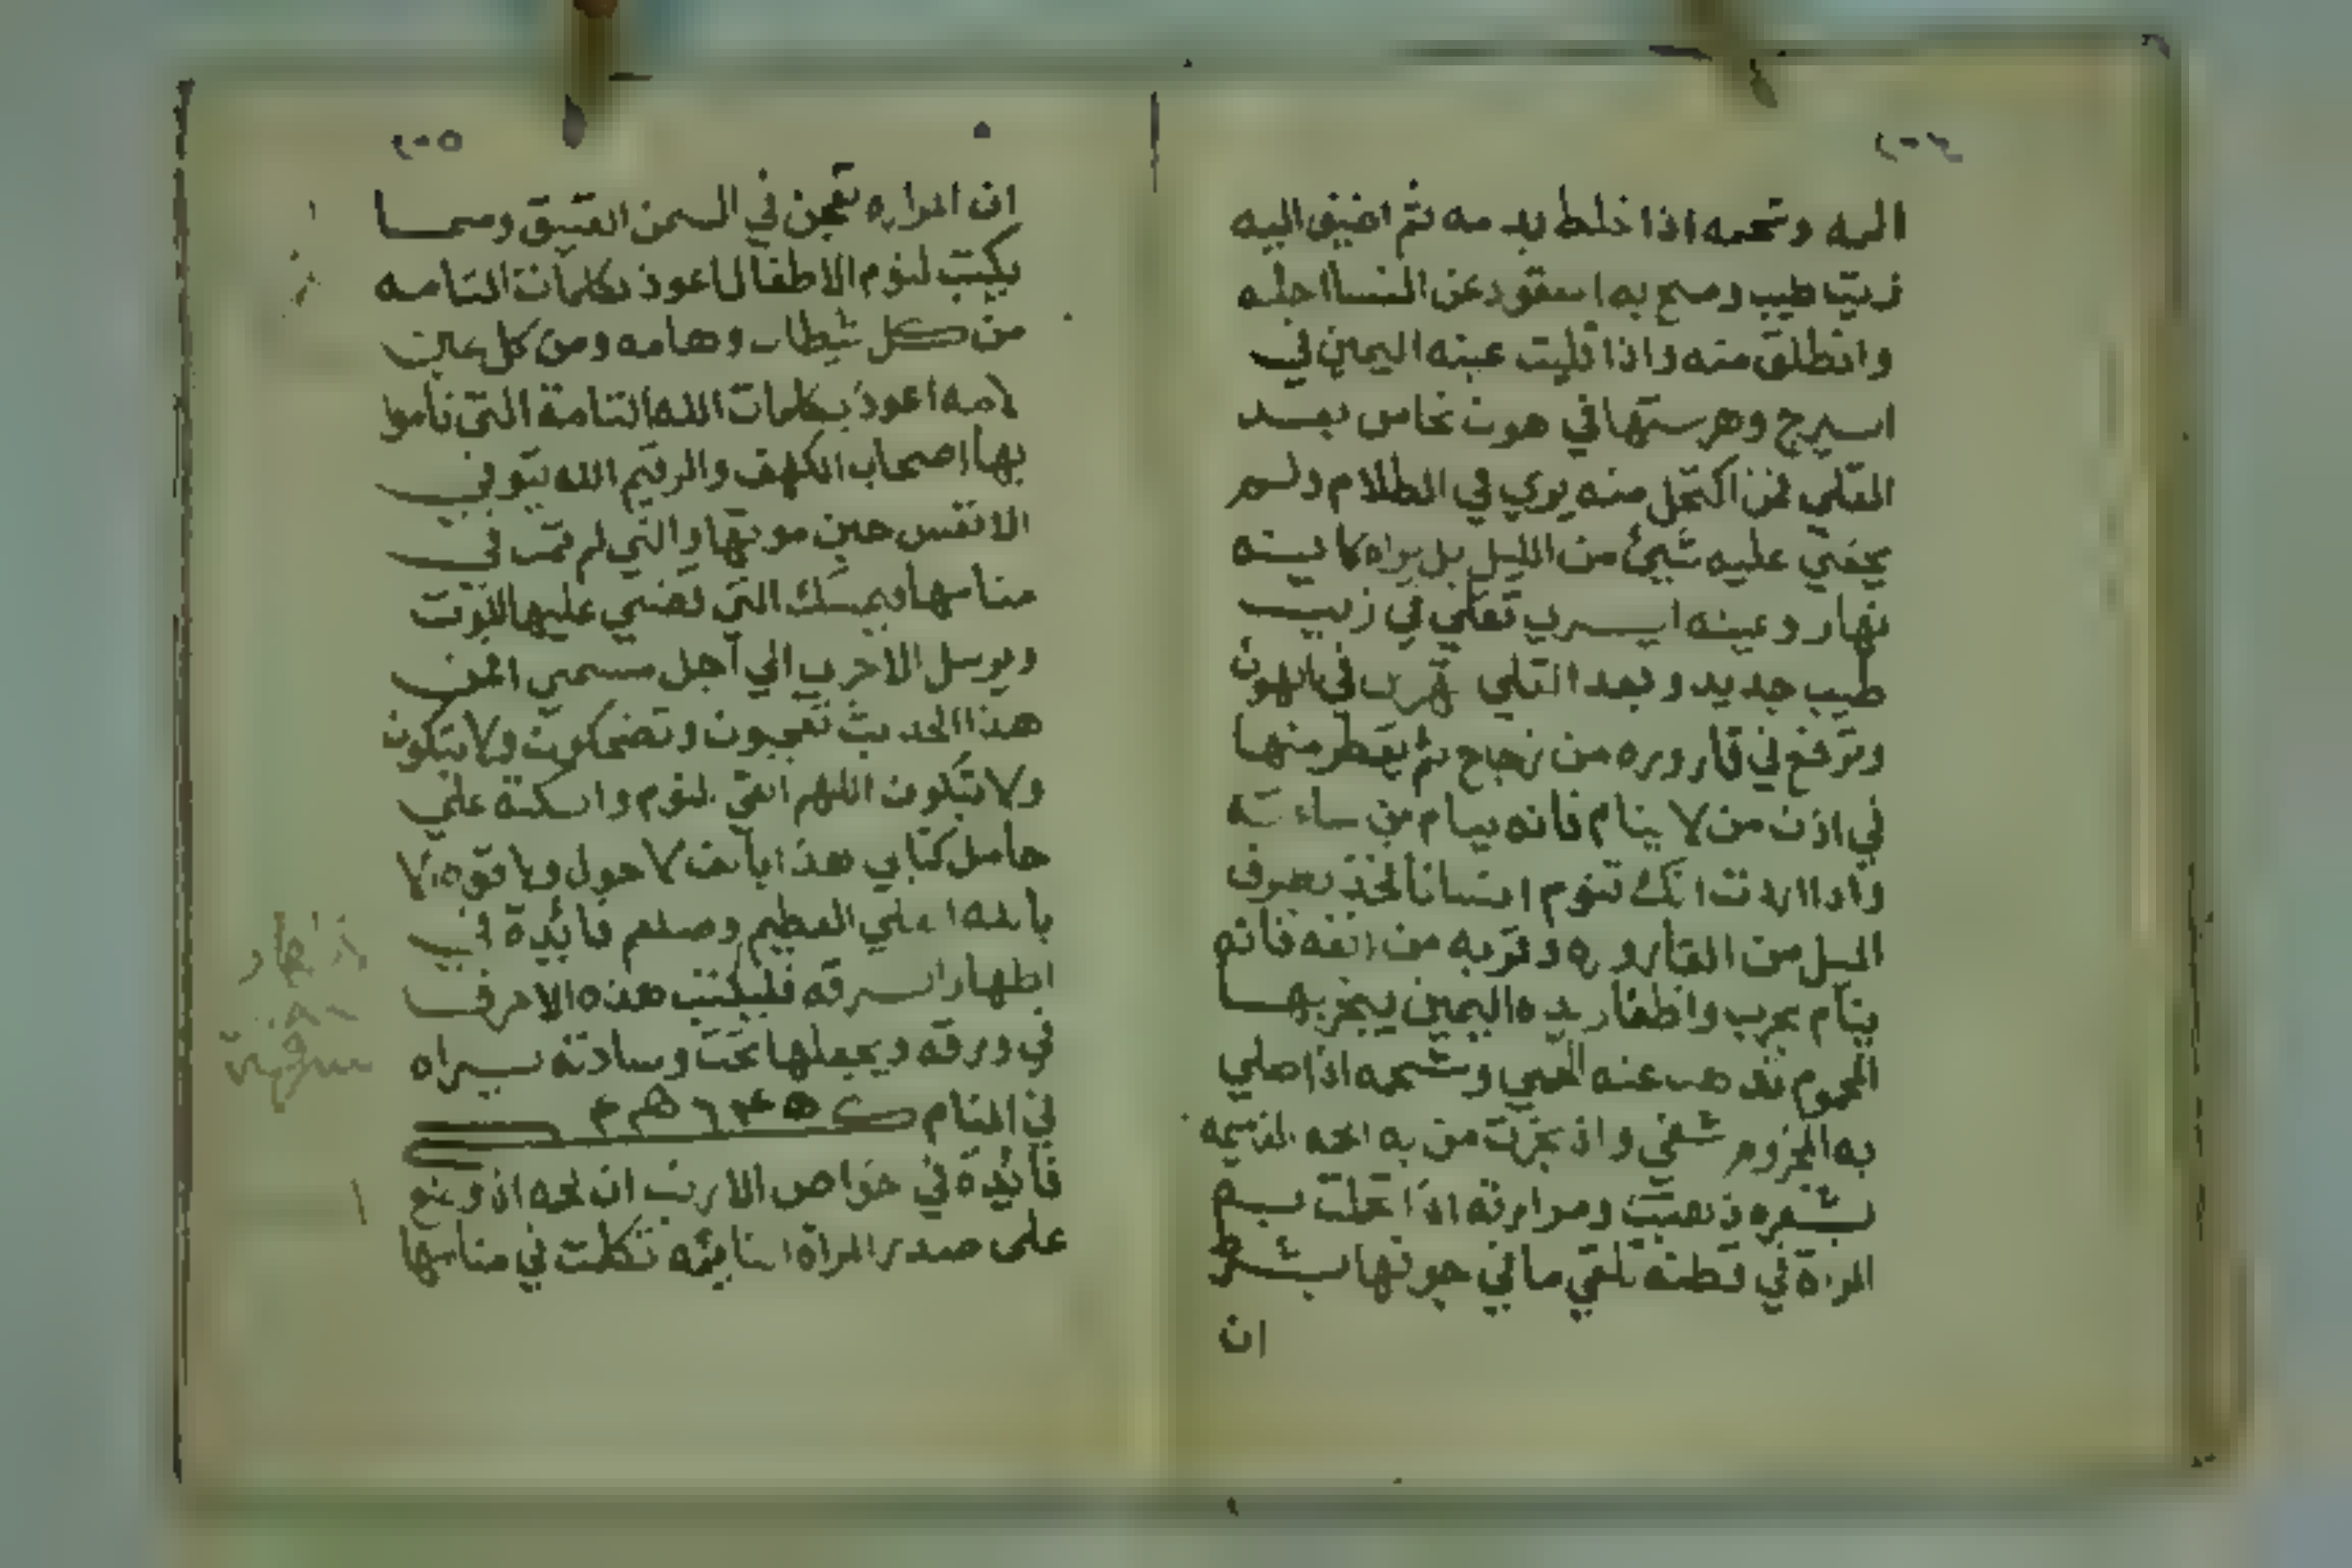 ٢٠٤
اليه وشحمه اذا خلط بدمه ثم اضيف اليه
زيت طيب ومسح به المعقود عن النسا احله
وانطلق منه واذا قليت عينه اليمين في
السيرج وهرستها في هون نحاس بعد
القلي فمن اكتحل منه يري في الظلام ولم
يخفي عليه شيئ من الليل بل يراه كانه
نهار وعينه اليسري تقلي في زيت
طيب جديد وبعد القلي تهرس في الهون
وترفع في قاروره من زجاج ثم يقطر منها
في اذن من لا ينام فانه ينام من ساعته
واذا اردت انك تنوم انسانا فخذ بطرف
الميل من القاروره وقربه من انفه فانه
ينام مجرب واظفار يده اليمين يبخر بها
المحموم تذهب عنه الحمي وشحمه اذا طلي
به المجزوم شفي واذ بخرت من به الحمه القديمه
بشعره ذهبت ومرارته اذا تحملت بهم
المراة في قطنه تلقي ما في جوفها بسرعة
ان
٢٠٥
ان المراره تعجن في السمن العتيق ومما
يكتب لنوم الاطفال اعوذ بكلمات التامه
من كل شيطان وهامه ومن كل عين
لامه اعوذ بكلمات الله التامة التي ناموا
بها اصحاب الكهف والرقيم الله يتوفي
الانفس حين موتها والتي لم تمت في
منامها فيمسك التي قضي عليها الموت
ويرسل الاخري الي اجل مسمي افمن
هذا الحديث تعجبون وتضحكون ولا تبكون
ولا تبكون اللهم القي النوم والسكنة علي
حامل كتابي هذا بالف لا حول ولا قوه الا
بالله العلي العظيم وصلعم فايدة في
اظهار السرقه فليكتب هذه الاحرف
في ورقه ويجعلها تحت وسادته يراه
في المنام
فايدة في خواص الارنب ان لحمه اذ وضع
على صدر المراة النايمه تكلمت في منامها
اظهار
سرقة